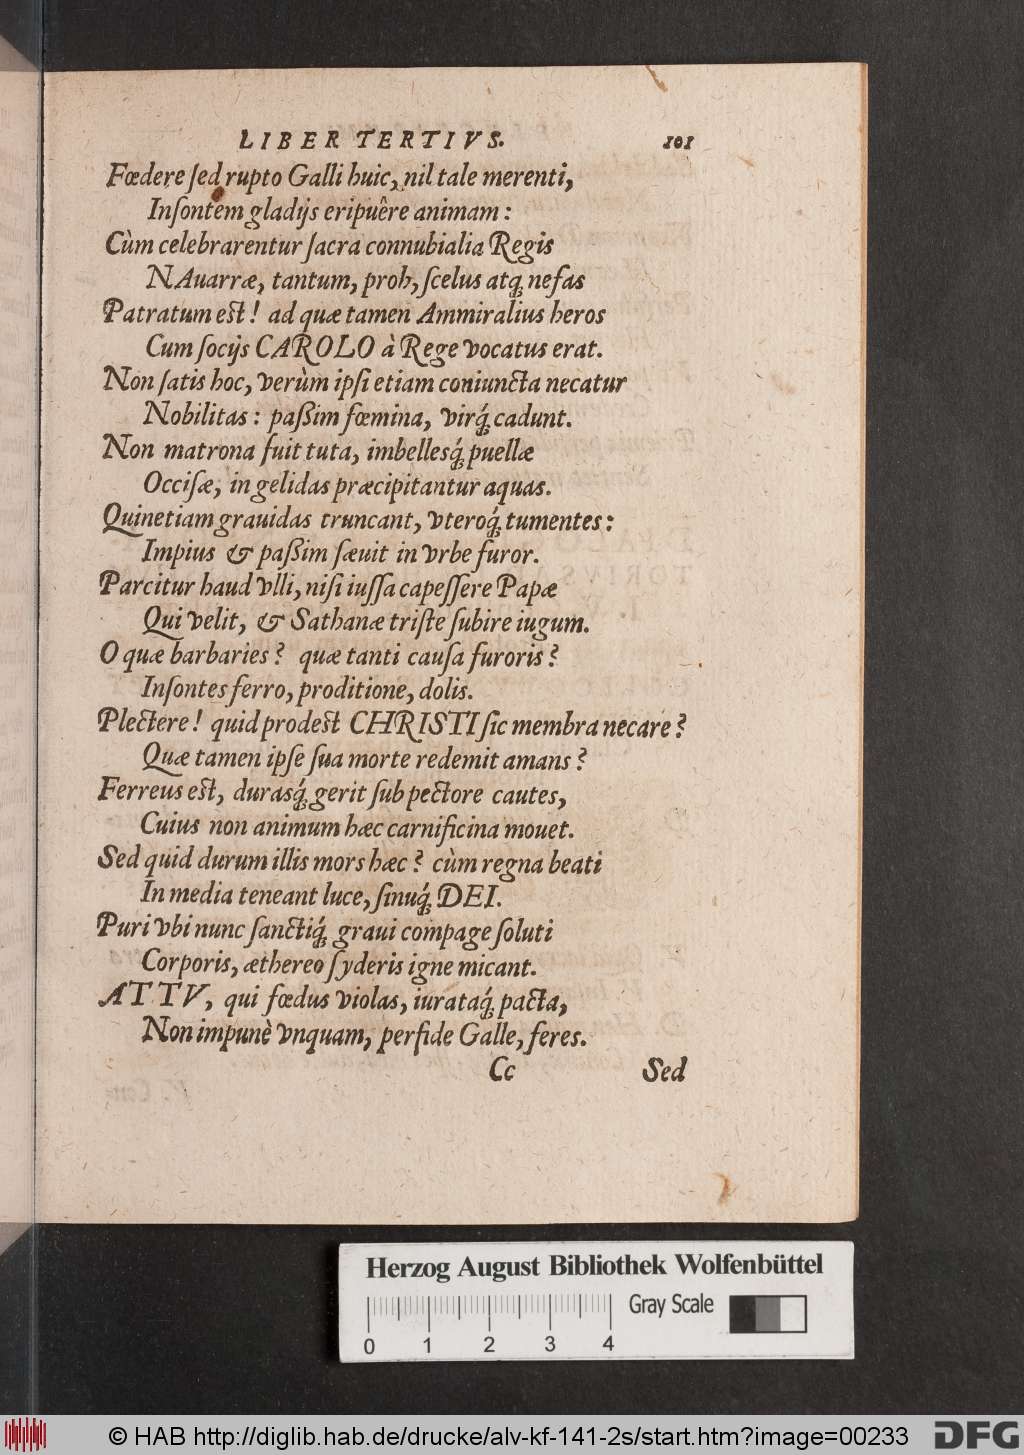 LIBER TERTIVS. 101
Fœdere ſed rupto Galli huic, nil tale merenti,
Inſontem gladijs eripuêre animam:
Cùm celebrarentur ſacra connubialia Regis
NAuarræ, tantum, proh, ſcelus atq́ue nefas
Patratum est! ad quæ tamen Ammiralius heros
Cum ſocijs CAROLO à Rege vocatus erat.
Non ſatis hoc, verùm ipſi etiam coniuncta necatur
Nobilitas: paßim fœmina, virq́ꝫ cadunt.
Non matrona fuit tuta, imbellesq́ꝫ puellæ
Occiſæ, in gelidas præcipitantur aquas.
Quinetiam grauidas truncant, vteroq́ꝫ tumentes:
Impius & paßim ſæuit in vrbe furor.
Parcitur haud vlli, niſi iuſſa capeſſere Papæ
Qui velit, & Sathanæ triſte ſubire iugum.
O quæ barbaries? quæ tanti cauſa furoris?
Inſontes ferro, proditione, dolis.
Plectere! quid prodest CHRISTI ſic membra necare?
Quæ tamen ipſe ſua morte redemit amans?
Ferreus est, durasq́ꝫ gerit ſub pectore cautes,
Cuius non animum hæc carnificina mouet.
Sed quid durum illis mors hæc? cùm regna beati
In media teneant luce, ſinuq́ꝫ DEI.
Puri vbi nunc ſanctiq́ꝫ graui compage ſoluti
Corporis, æthereo ſyderis igne micant.
AT TV, qui fœdus violas, iurataq́ꝫ pacta,
Non impunè vnquam, perfide Galle, feres.
Cc Sed
Herzog August Bibliothek Wolfenbüttel
Gray Scale
0 1 2 3 4
© HAB http://diglib.hab.de/drucke/alv-kf-141-2s/start.htm?image=00233
DFG